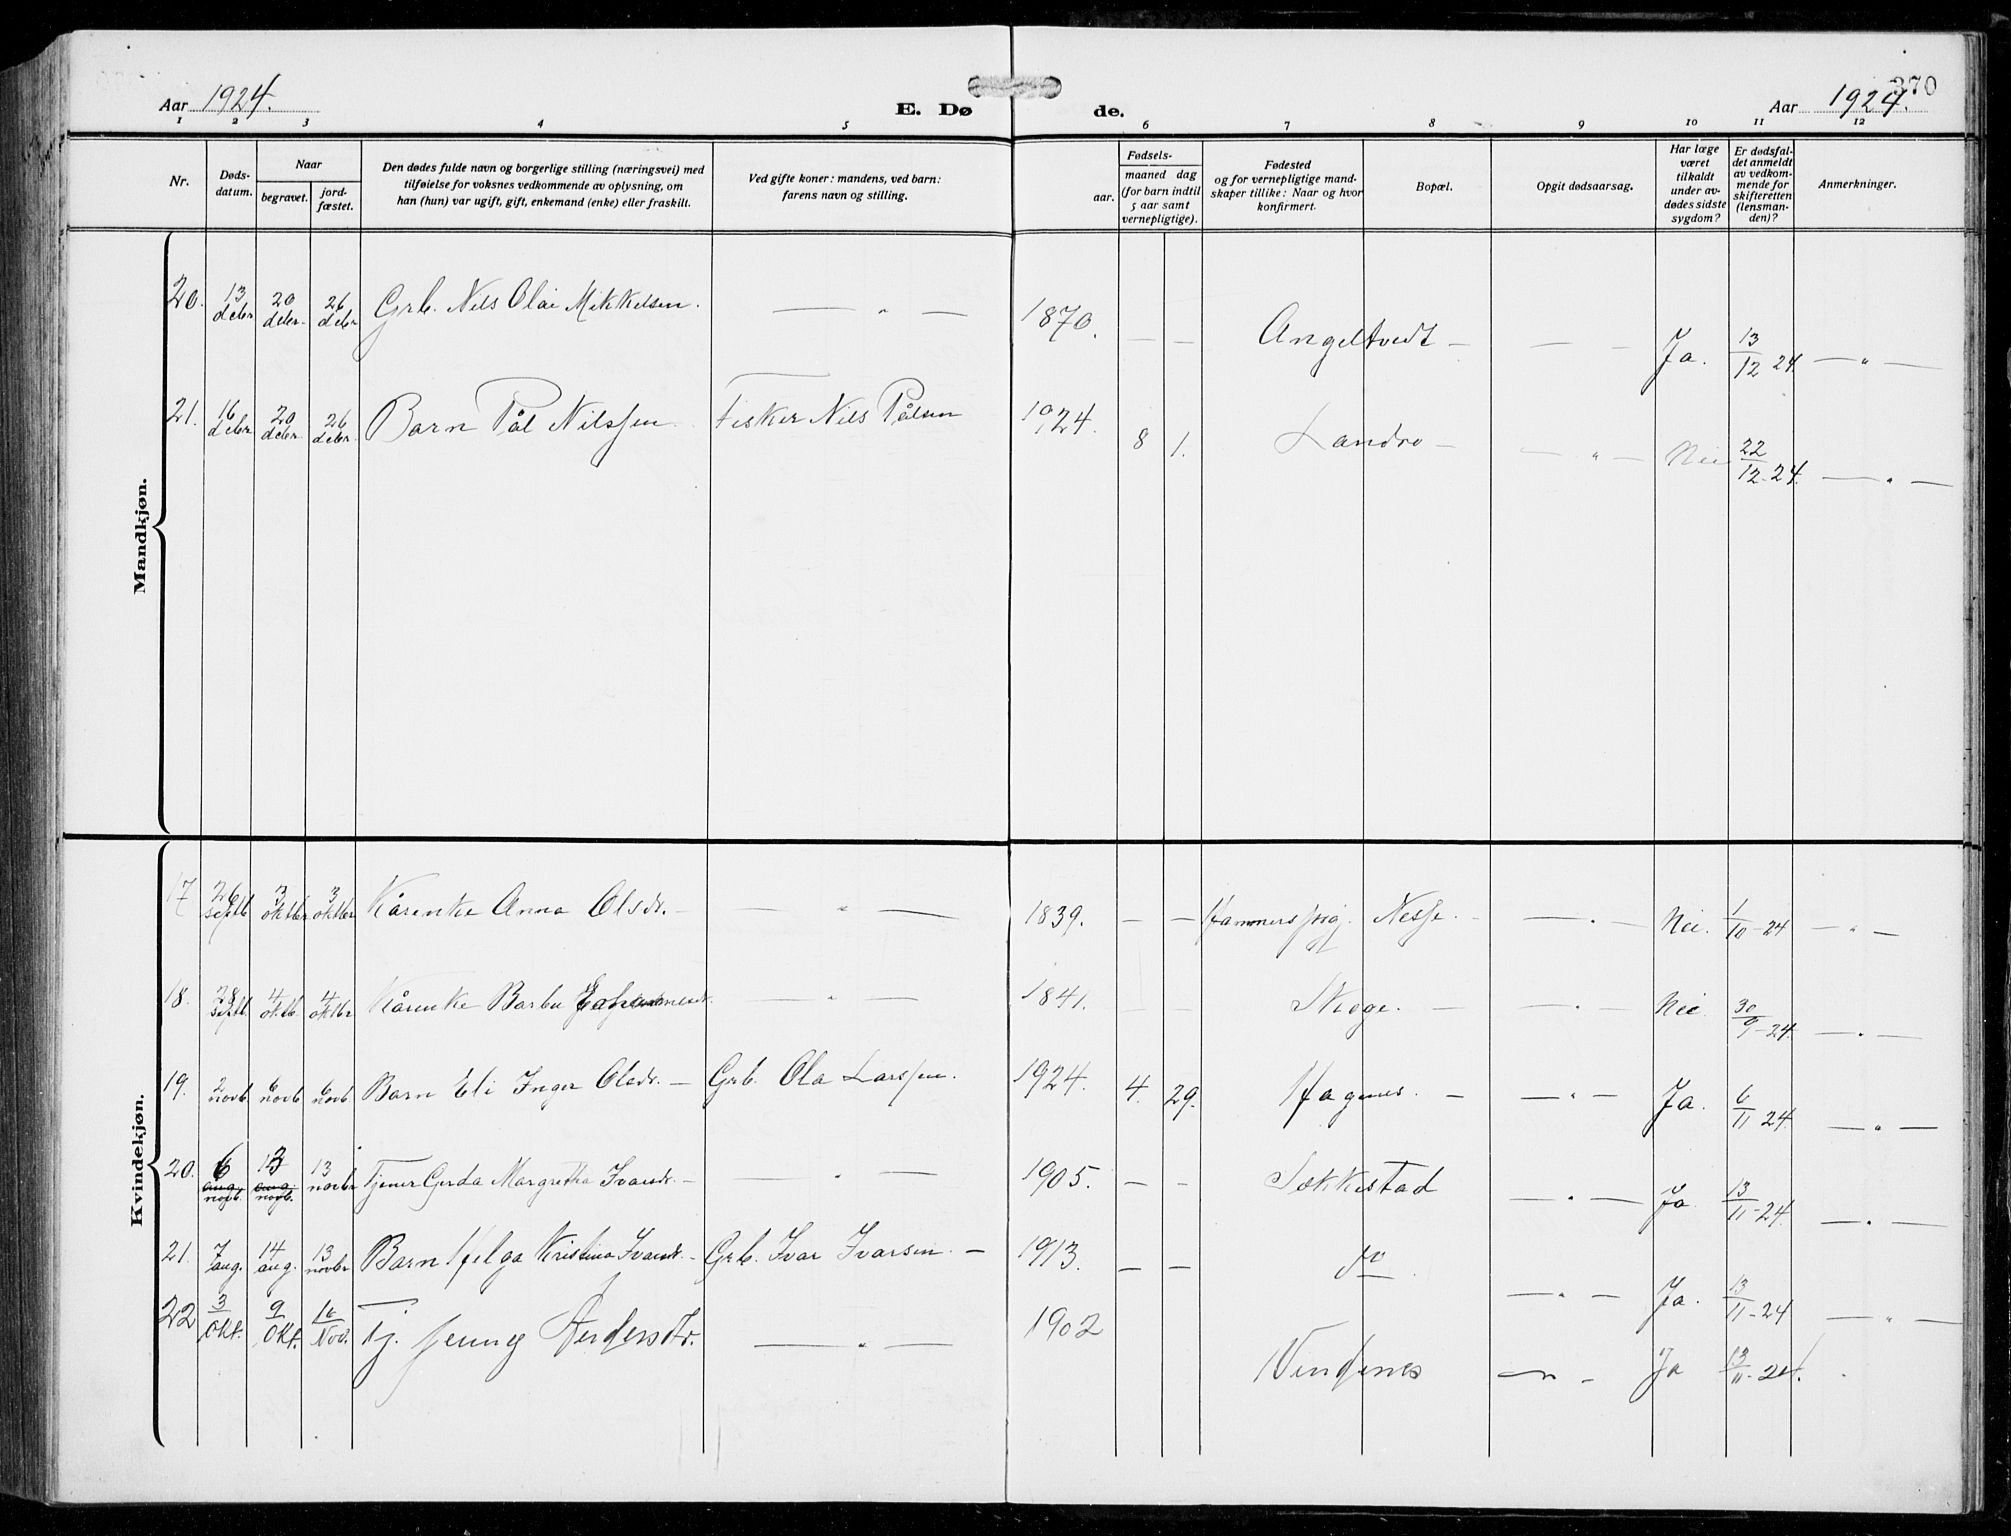 370
Aar 1924.
E. Døde.
Aar 1924.
1 2 3 4 5 6 7 8 9 10 11 12
Nr.
Døds-
datum.
Naar
begravet.
jord-
fæstet.
Den dødes fulde navn og borgerlige stilling (næringsvei) med
tilføielse for voksnes vedkommende av oplysning, om
han (hun) var ugift, gift, enkemand (enke) eller fraskilt.
Ved gifte koner: mandens, ved barn:
farens navn og stilling.
Fødsels-
aar.
maaned dag
(for barn indtil
5 aar samt
vernepligtige).
Fødested
og for vernepligtige mand-
skaper tillike: Naar og hvor
konfirmert.
Bopæl.
Opgit dødsaarsag.
Har læge
været
tilkaldt
under av-
dødes sidste
sygdom?
Er dødsfal-
det anmeldt
av vedkom-
mende for
skifteretten
(lensman-
den)?
Anmerkninger.
Mandkjøn.
20. 13 debr 20 debr. 26 debr Grb. Nils Olai Mikkelsen. — „ — 1870. — — Angeltvedt — — — Ja. 13/12 24 — „ —
21. 16 debr 20 debr. 26 debr. Barn Pål Nilssen Fisker Nils Pålsen 1924. 8 1. Landro — — „ — Nei 22/12-24. — „ —
Kvindekjøn.
17 26 septb 3 oktbr 3 oktbr Kårenke Anna Olsdr. — — „ — 1839. — — Hammersspig. Nesse. — — „ — Nei. 1/10-24 — „ —
18. 28 septb. 4 oktb. 4 oktbr Kårenke Barbu — „ — 1841. — — Skoge. — — „ — Nei 30/9-24. — „ —
19. 2 novb. 6 novb 6 novb Barn Eli Inger Olsdr. — Grb. Ola Larssen. 1924. 4. 29. Hagenes. — — „ — Ja. 6/11 24. — „ —
20. 6 aug. novb. 13 aug. novb. 13 novbr Tjener Gerda Margretha Ivarsdr. — — „ — 1905. — — Sekkestad — „ — Ja. 13/11-24. — „ —
21. 7 aug. 14 aug. 13 novbr Barn Helga Kristina Ivarsdr. — Grb. Ivar Ivarsen. — 1913. — — do — „ — Ja. 13/11-24 — „ —
22 3/Okt. 9/Okt. 16/Nov. Tj. Jenny Andersdtr. — „ — 1902 Vindenes — „ — Ja 13/11-24.